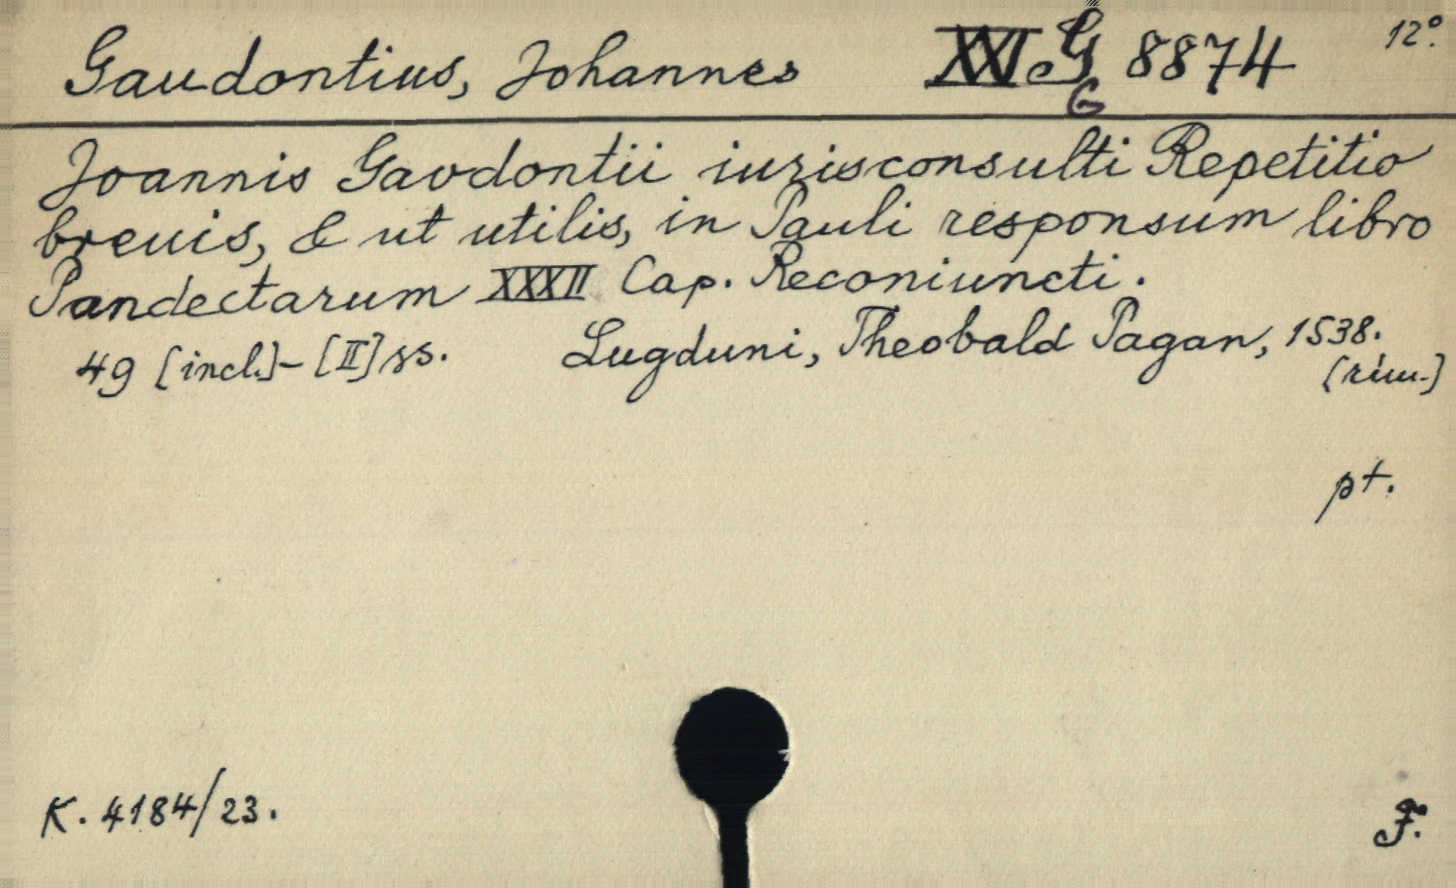 Gaudontius, Johannes XXI G 8874 12°.
G
Joannis Gavdontii iurisconsulti Repetitio
breuis, & ut utilis, in Pauli responsum libro
Pandectarum XXXII Cap. Reconiuncti.
49 [incl.]-[II] ss. Lugduni, Theobald Pagan, 1538.
pt.
K. 4184/23. F.